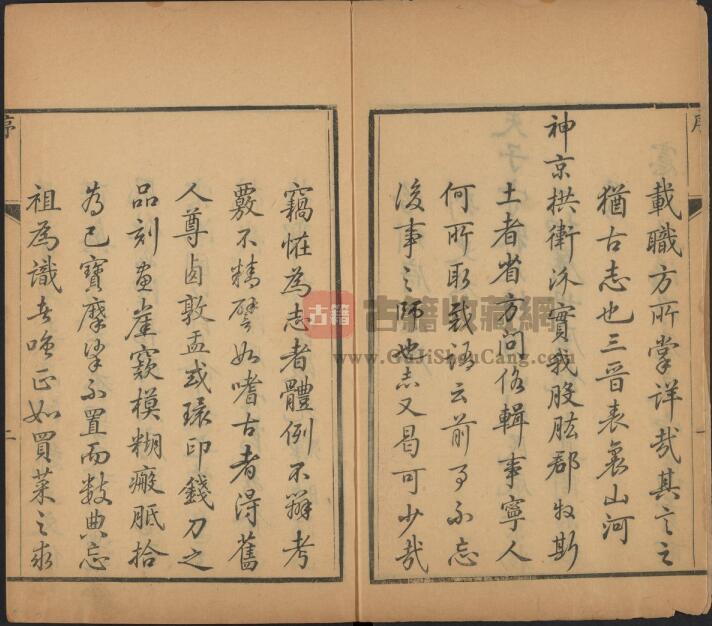 載職方所掌詳哉其言之
猶古志也三晉表裏山河
神京拱衛汾實我股肱郡牧斯
土者省方問俗輯事寧人
何所取裁語云前事不忘
後事之師也志又曷可少哉
竊恠為志者體例不辨考
覈不精譬如嗜古者得舊
人尊卣敦盂或環印錢刀之
品刻畫崖窾模糊瘢胝拾
為己寶摩挲不置而數典忘
祖為識者嗤正如買菜之求
序
二
古籍 古籍收藏網
www.GuJiShuCang.com